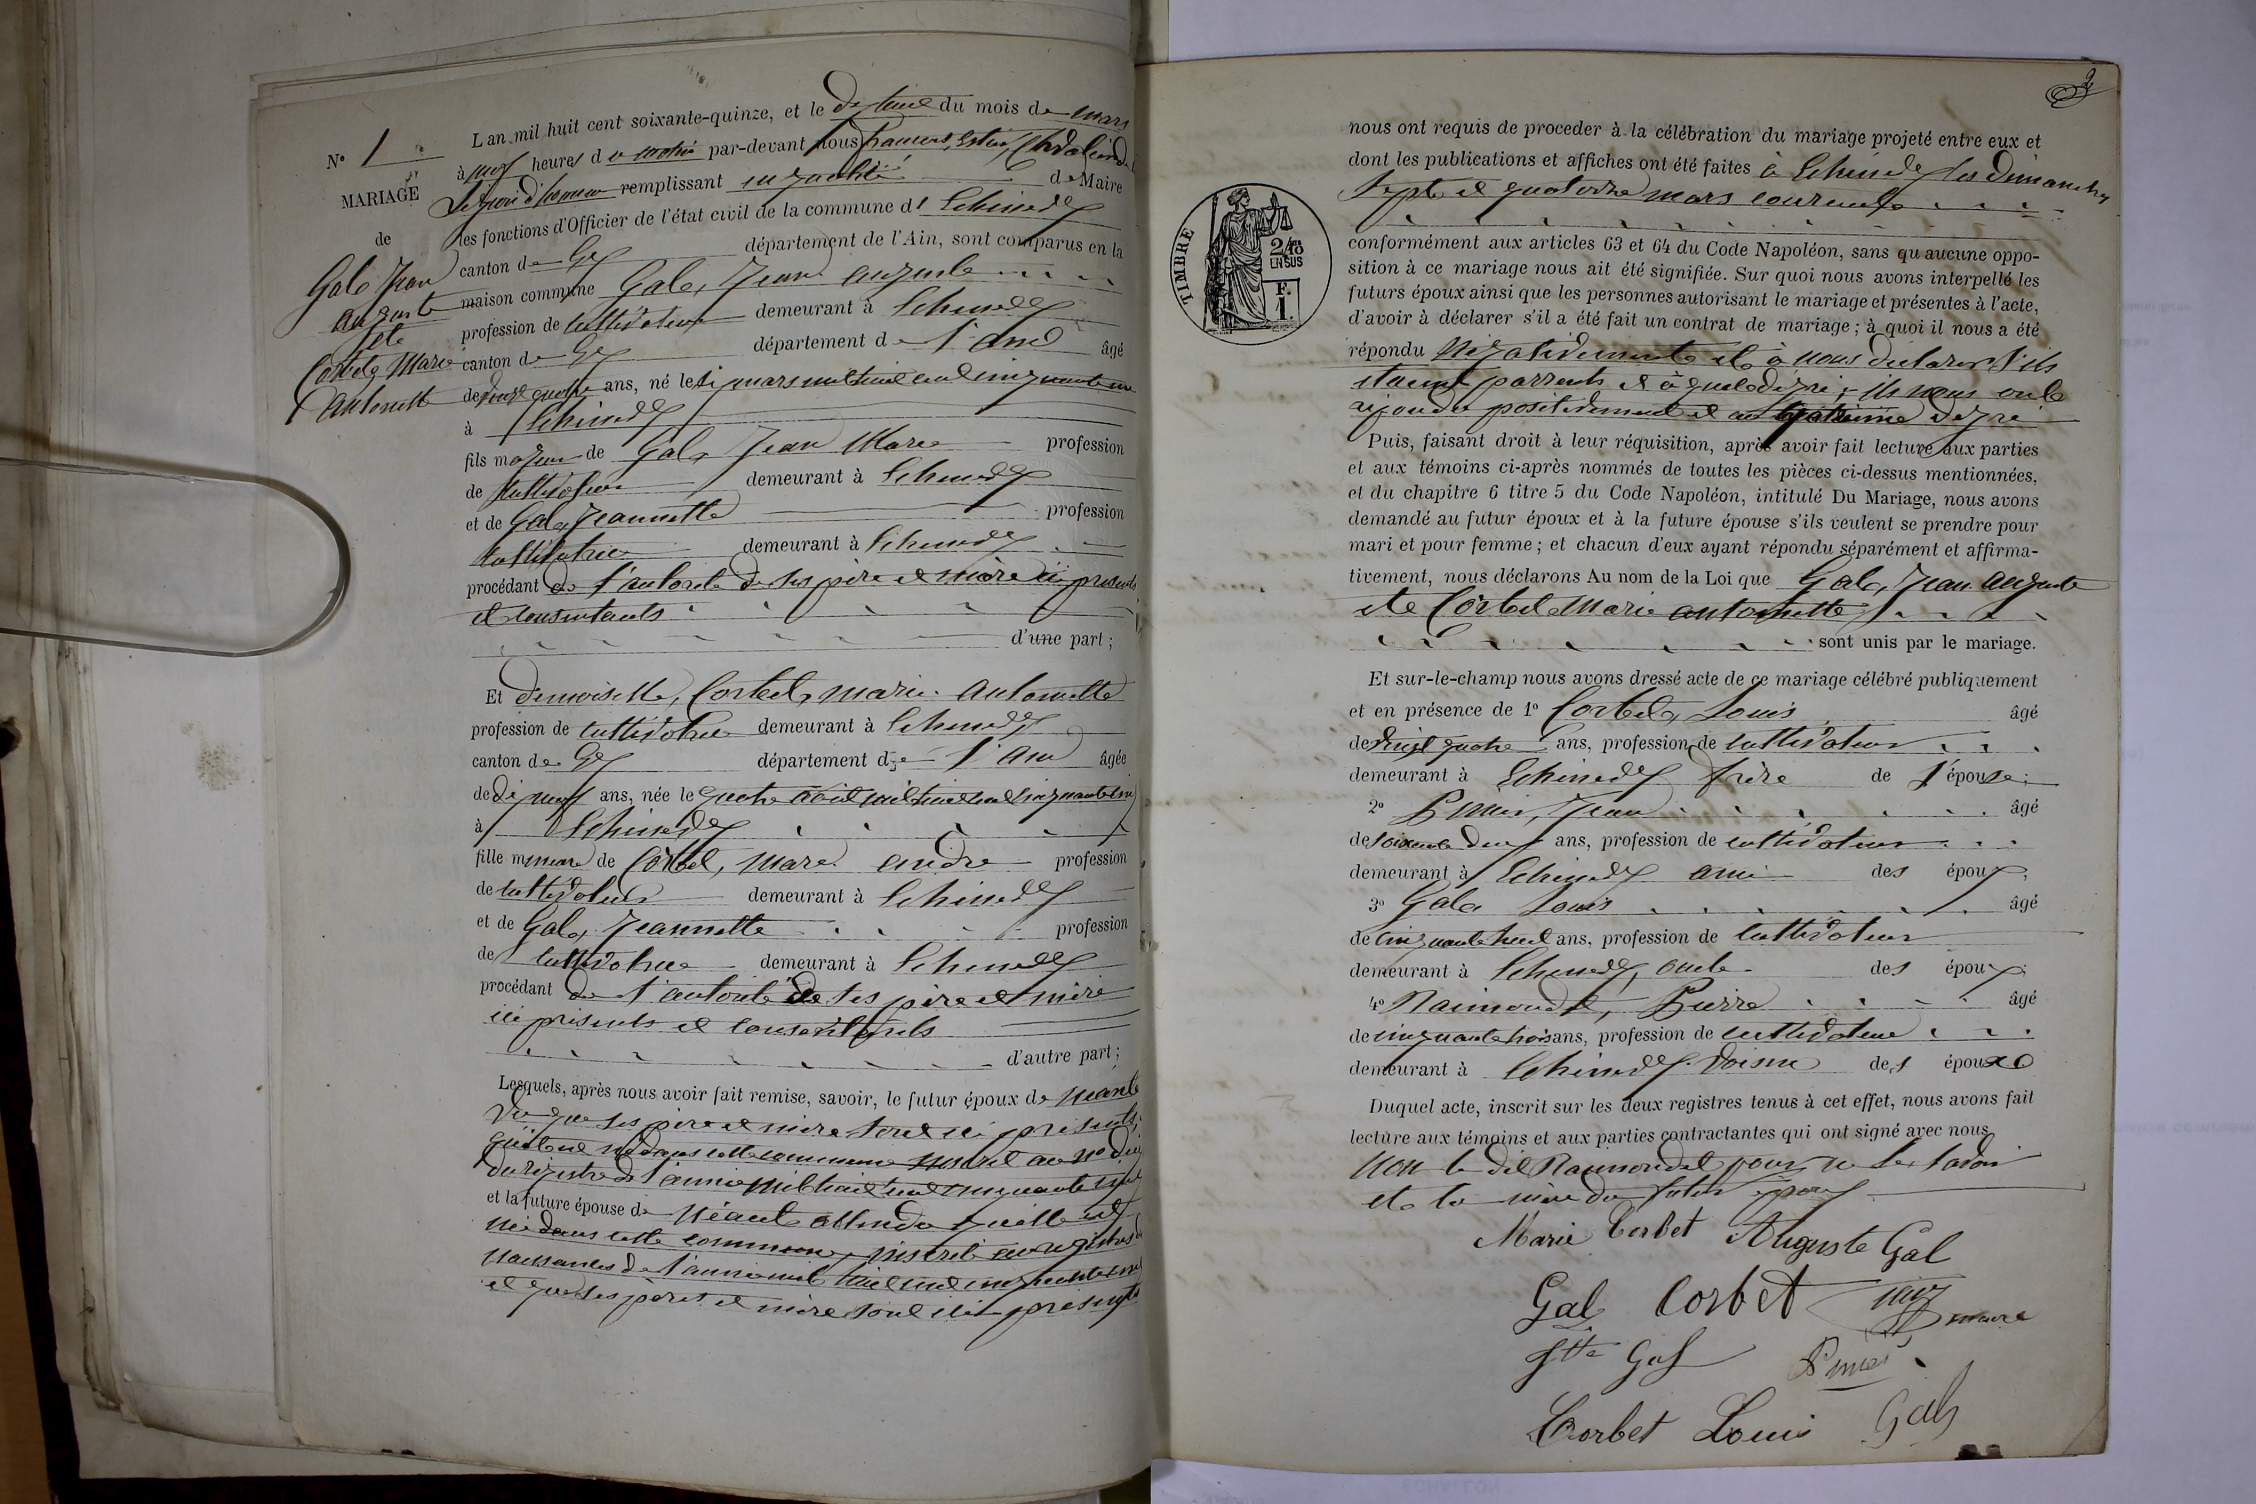 N° 1
MARIAGE
de
Gal, Jean
auguste
et de
Corbet, Marie
antoinette
L'an mil huit cent soixante-quinze, et le du mois de mars
à neuf heures du matin par-devant nous
remplissant en qualité de Maire
les fonctions d'Officier de l'état civil de la commune d'Echenevex
canton de Gex département de l'Ain, sont comparus en la
maison commune Gal, Jean auguste
profession de cultivateur demeurant à Echenevex
canton de Gex département de l'ain âgé
de vingt quatre ans, né le six mars mil huit cent cinquante un
à Echenevex
fils majeur de Gal, Jean Marie profession
de cultivateur demeurant à Echenevex
et de Gal, Jeannette profession
cultivatrice demeurant à Echenevex
procédant de l'autorité de ses père et mère ici présents
et consentants
d'une part ;
Et demoiselle, Corbet, marie antoinette
profession de cultivatrice demeurant à Echenevex
canton de Gex département de l'ain âgée
de dix neuf ans, née le quatre août mil huit cent cinquante cinq
à Echenevex
fille mineure de Corbet, marie andré profession
de cultivateur demeurant à Echenevex
et de Gal, Jeannette profession
de cultivatrice demeurant à Echenevex
procédant de l'autorité de ses père et mère
ici présents et consentants
d'autre part ;
Lesquels, après nous avoir fait remise, savoir, le futur époux de néant
vu que ses père et mère sont ici présents,
qu'il est né dans cette commune inscrit au n°
du registre de l'année mil huit cent cinquante un
et la future épouse de Néant attendu qu'elle est
née dans cette commune, inscrite au registre de
naissances de l'année mil huit cent cinquante cinq
et que ses père et mère sont ici présents
2
TIMBRE
2/10 EN SUS
F. 1.
nous ont requis de procéder à la célébration du mariage projeté entre eux et
dont les publications et affiches ont été faites à Echenevex les dimanches
sept et quatorze mars courant
conformément aux articles 63 et 64 du Code Napoléon, sans qu'aucune oppo-
sition à ce mariage nous ait été signifiée. Sur quoi nous avons interpellé les
futurs époux ainsi que les personnes autorisant le mariage et présentes à l'acte,
d'avoir à déclarer s'il a été fait un contrat de mariage ; à quoi il nous a été
répondu négativement et à nous déclarer s'ils
étaient parents et à quel dégré ; ils nous ont
répondu positivement et au quatrième dégré
Puis, faisant droit à leur réquisition, après avoir fait lecture aux parties
et aux témoins ci-après nommés de toutes les pièces ci-dessus mentionnées,
et du chapitre 6 titre 5 du Code Napoléon, intitulé Du Mariage, nous avons
demandé au futur époux et à la future épouse s'ils veulent se prendre pour
mari et pour femme ; et chacun d'eux ayant répondu séparément et affirma-
tivement, nous déclarons Au nom de la Loi que Gal, Jean auguste
et Corbet Marie antoinette
sont unis par le mariage.
Et sur-le-champ nous avons dressé acte de ce mariage célébré publiquement
et en présence de 1° Corbet, Louis âgé
de vingt quatre ans, profession de cultivateur
demeurant à Echenevex frère de l'épouse ;
2° Jean âgé
de soixante deux ans, profession de cultivateur
demeurant à Echenevex ami des époux ;
3° Gal Louis âgé
de cinquante huit ans, profession de cultivateur
demeurant à Echenevex, oncle des époux ;
4° Raimondet, Pierre âgé
de cinquante trois ans, profession de cultivateur
demeurant à Echenevex voisin des époux
Duquel acte, inscrit sur les deux registres tenus à cet effet, nous avons fait
lecture aux témoins et aux parties contractantes qui ont signé avec nous
non le dit Raimondet pour ne le savoir
et la mère du futur époux
Marie Corbet Auguste Gal
Gal Corbet
maire
Jtte Gal
Corbet Louis Gal